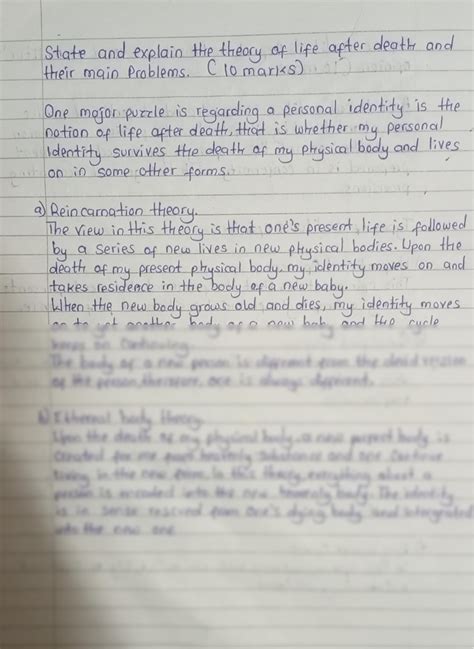 State and explain the theory of life after death and
their main Problems. (10 marks)
One major puzzle is regarding a personal identity is the
notion of life after death, that is whether my personal
Identity survives the death of my physical body and lives
on in some other forms.
a) Reincarnation theory.
The view in this theory is that one's present life is followed
by a series of new lives in new physical bodies. Upon the
death of my present physical body, my identity moves on and
takes residence in the body of a new baby.
When the new body grows old and dies, my identity moves
on to yet another body of a new baby and the cycle
keeps on continuing.
The body of a new person is different from the dead version
of the person, therefore, one is always different.
b) Ethereal body theory
Upon the death of my physical body, a new perfect body is
created for me heavenly substance and one continue
living in the new form. In this theory, everything about a
person is encoded into the new heavenly body. The identity
is in sense rescued from one's dying body and integrated
into the new one.